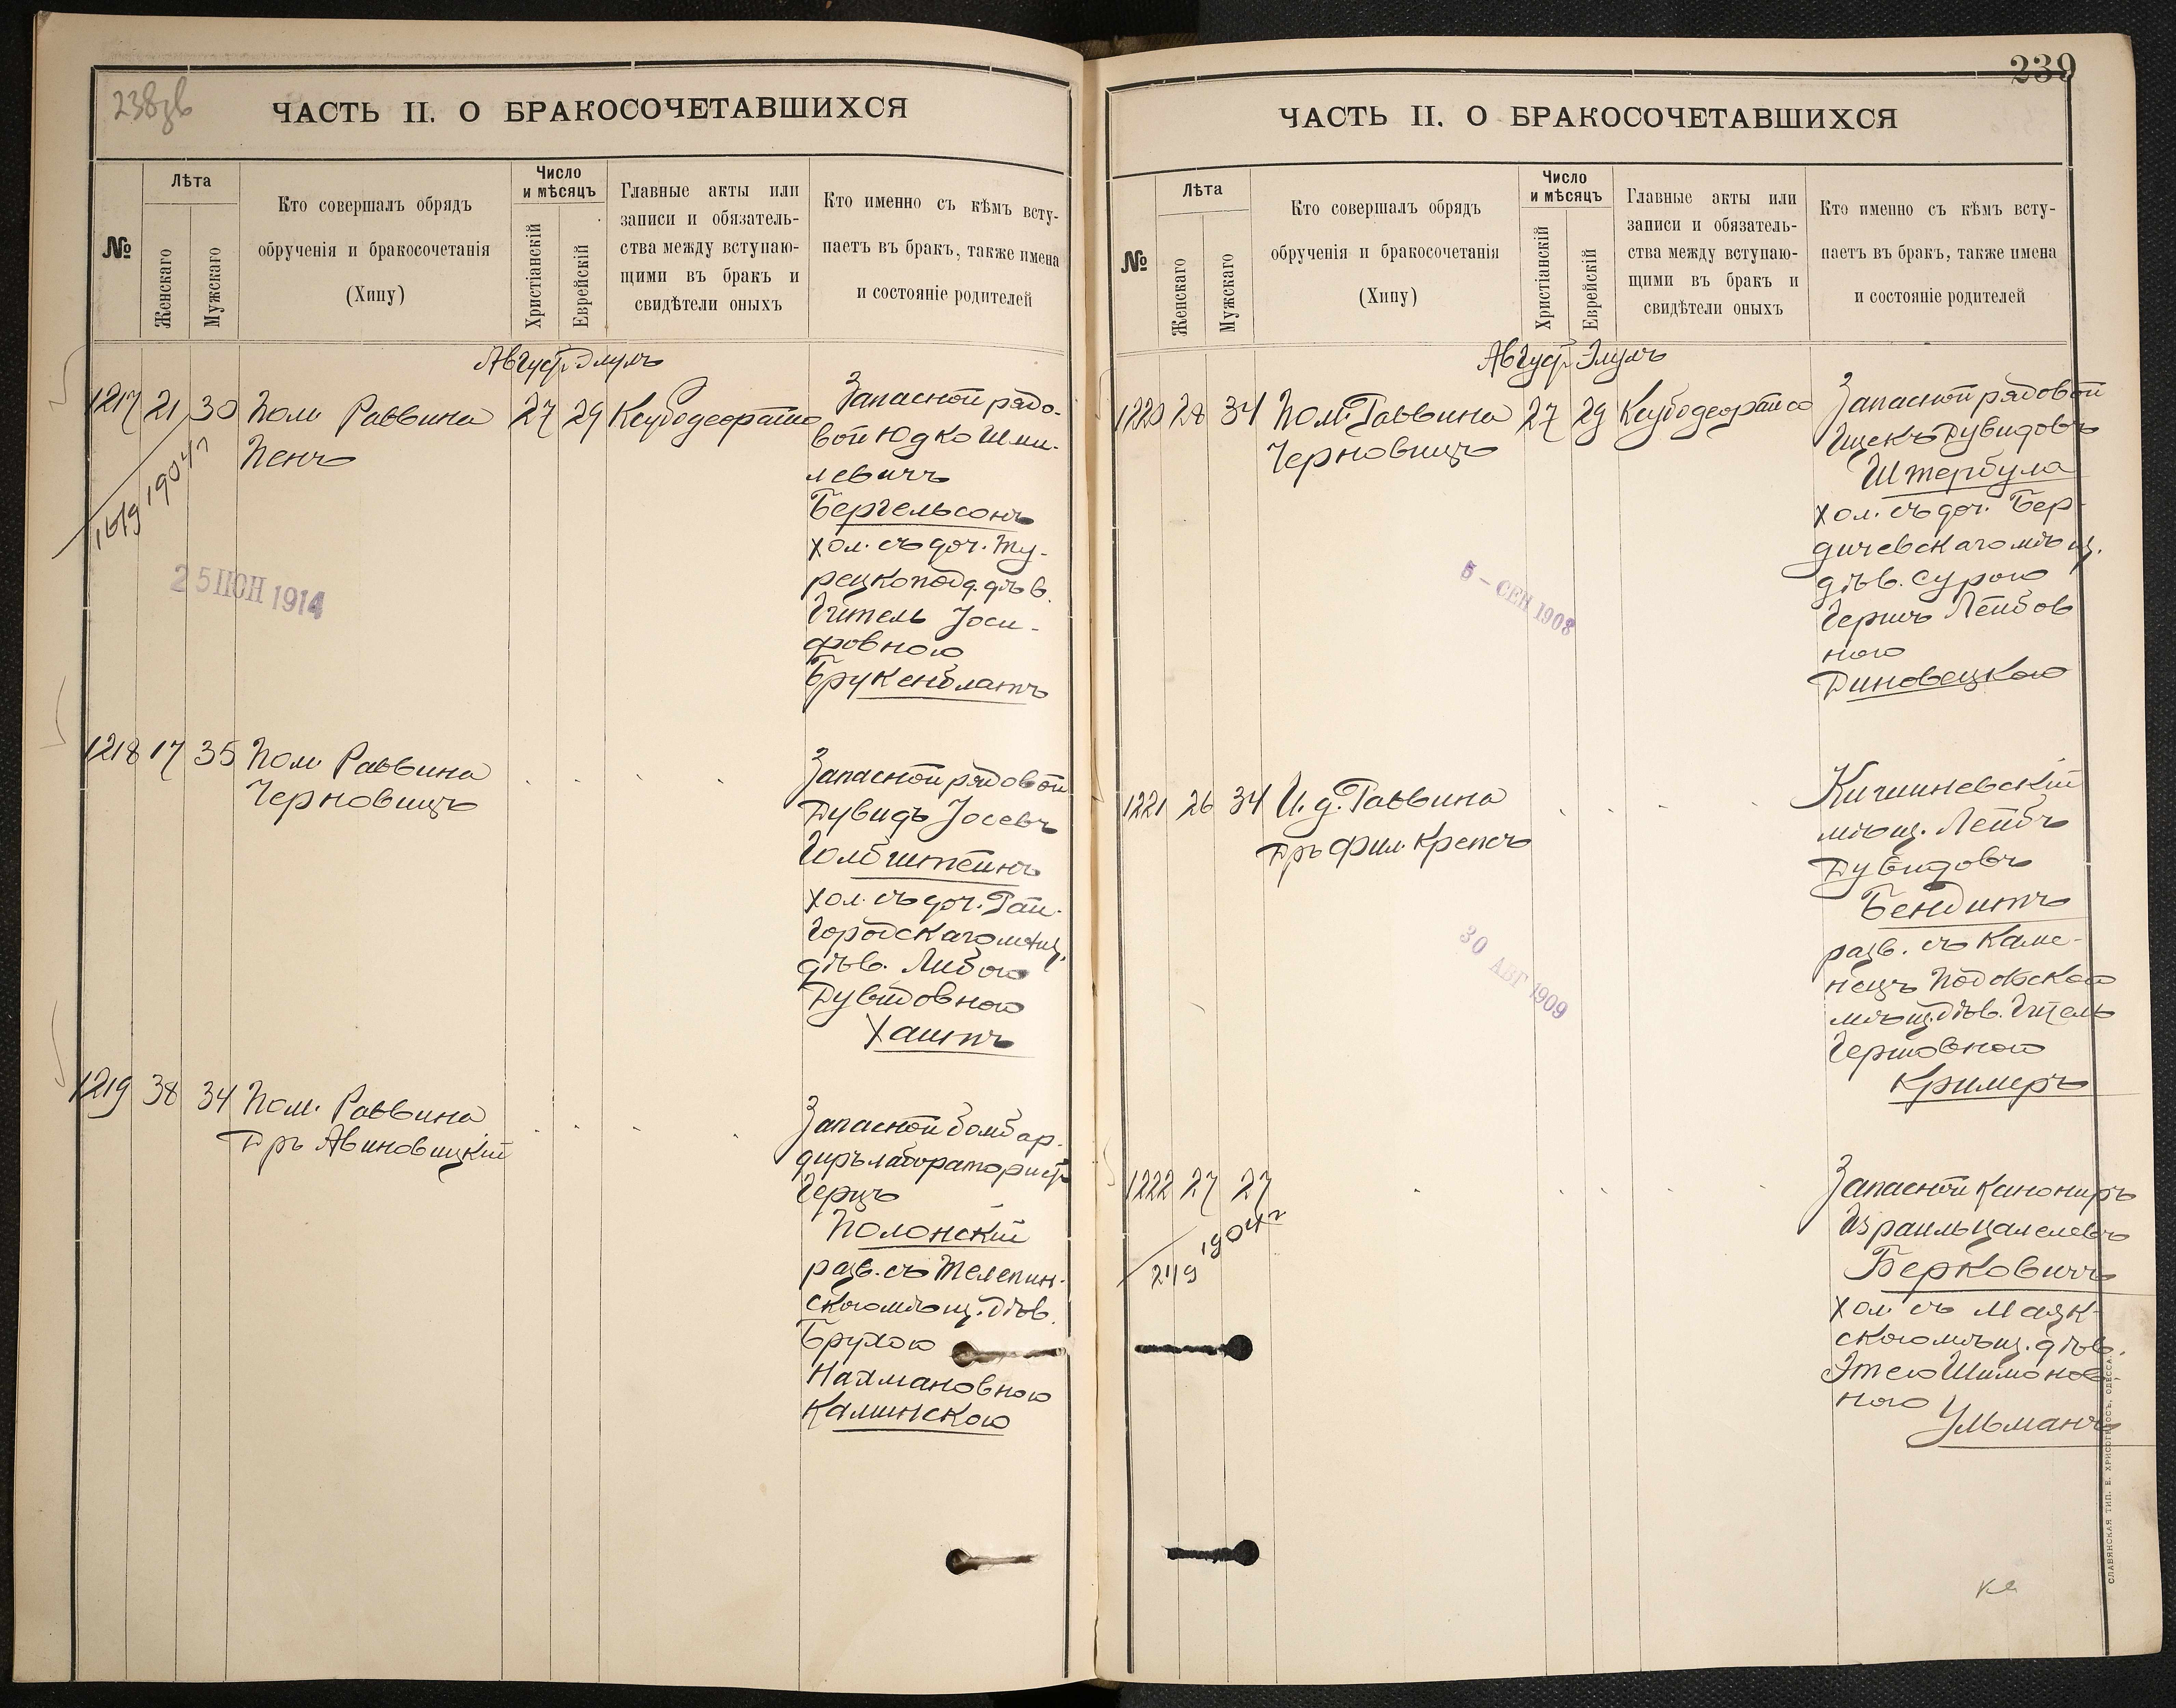 238зв
ЧАСТЬ II. О БРАКОСОЧЕТАВШИХСЯ
№
Лѣта
Женскаго
Мужскаго
Кто совершалъ обрядъ
обрученія и бракосочетанія
(Хипу)
Число
и мѣсяцъ
Христіанскій
Еврейскій
Главные акты или
записи и обязатель-
ства между вступаю-
щими въ бракъ и
свидѣтели оныхъ
Кто именно съ кѣмъ всту-
паетъ въ бракъ, также имена
и состояніе родителей
Август. Элулъ
1217 21 30 Пом Раввина 27 29
Пенъ
16/9 1904 г
25 ІЮН 1914
Запасной рядо-
вой Юдко Шми-
левичъ
Бергельсонъ
хол. съ доч. Ту-
рецкопод. дѣв.
Гитель Іоси-
фовною
Брукенблатъ
1218 17 35 Пом Раввина
Черновицъ
Запасной рядовой
Дувидъ Іосевъ
Голбштейнъ
хол. съ доч. Гай-
городскаго мѣщ.
дѣв. Либою
Дувидовною
Хаитъ
1219 38 34 Пом. Раввина
Дръ Авиновицкій
Запасной бомбар-
диръ лабораторист
Герцъ
Полонскій
разв. съ Телепин-
скою мѣщ. дѣв.
Брухою
Нахмановною
Калинскою
239
ЧАСТЬ II. О БРАКОСОЧЕТАВШИХСЯ
№
Лѣта
Женскаго
Мужскаго
Кто совершалъ обрядъ
обрученія и бракосочетанія
(Хипу)
Число
и мѣсяцъ
Христіанскій
Еврейскій
Главные акты или
записи и обязатель-
ства между вступаю-
щими въ бракъ и
свидѣтели оныхъ
Кто именно съ кѣмъ всту-
паетъ въ бракъ, также имена
и состояніе родителей
Август. Элулъ
1220 28 34 Пом. Раввина 27 29
Черновицъ
5 - СЕН 1908
Запасной рядовой
Ицекъ Дувидовъ
Штербула
хол. съ доч. Бер-
дичевскаго мѣщ.
дѣв. Сурою
Гершъ Лейбов
ною
Диновецкою
1221 26 34 И. д. Раввина
Дръ Фил. Крепсъ
30 АВГ 1909
Кишиневскій
мѣщ. Лейбъ
Дувидовъ
Бендитъ
разв. съ Каме-
нецъ Подольскою
мѣщ. дѣв. Гитель
Гершовною
Кримеръ
1222 27 27
2/19 1904 г
Запасной канониръ
Израиль Цалелевъ
Берковичъ
хол. съ Маяк-
скою мѣщ. дѣв.
Этею Шимонов-
ною
Ульманъ
СЛАВЯНСКАЯ ТИП. Е. ХРИСОГЕЛОСЪ, ОДЕССА.